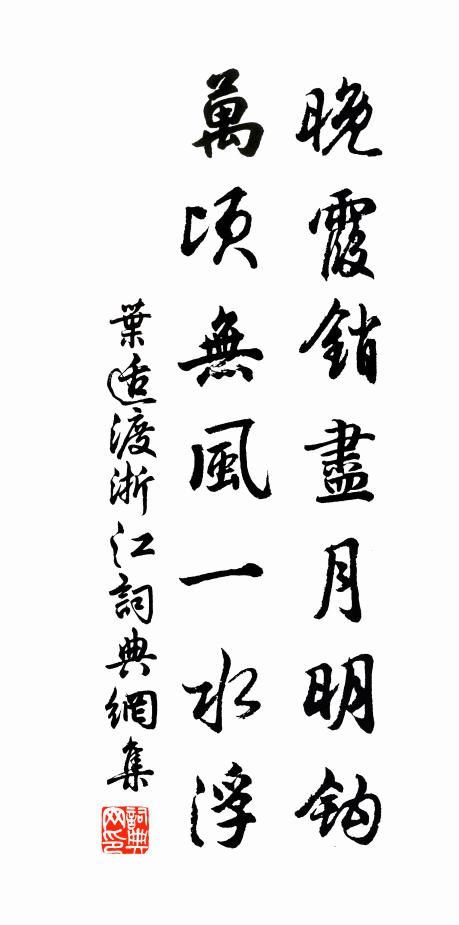 晚霞銷盡月明鈎
萬頃無風一水浮
葉适渡浙江詞典網集
詞典网印